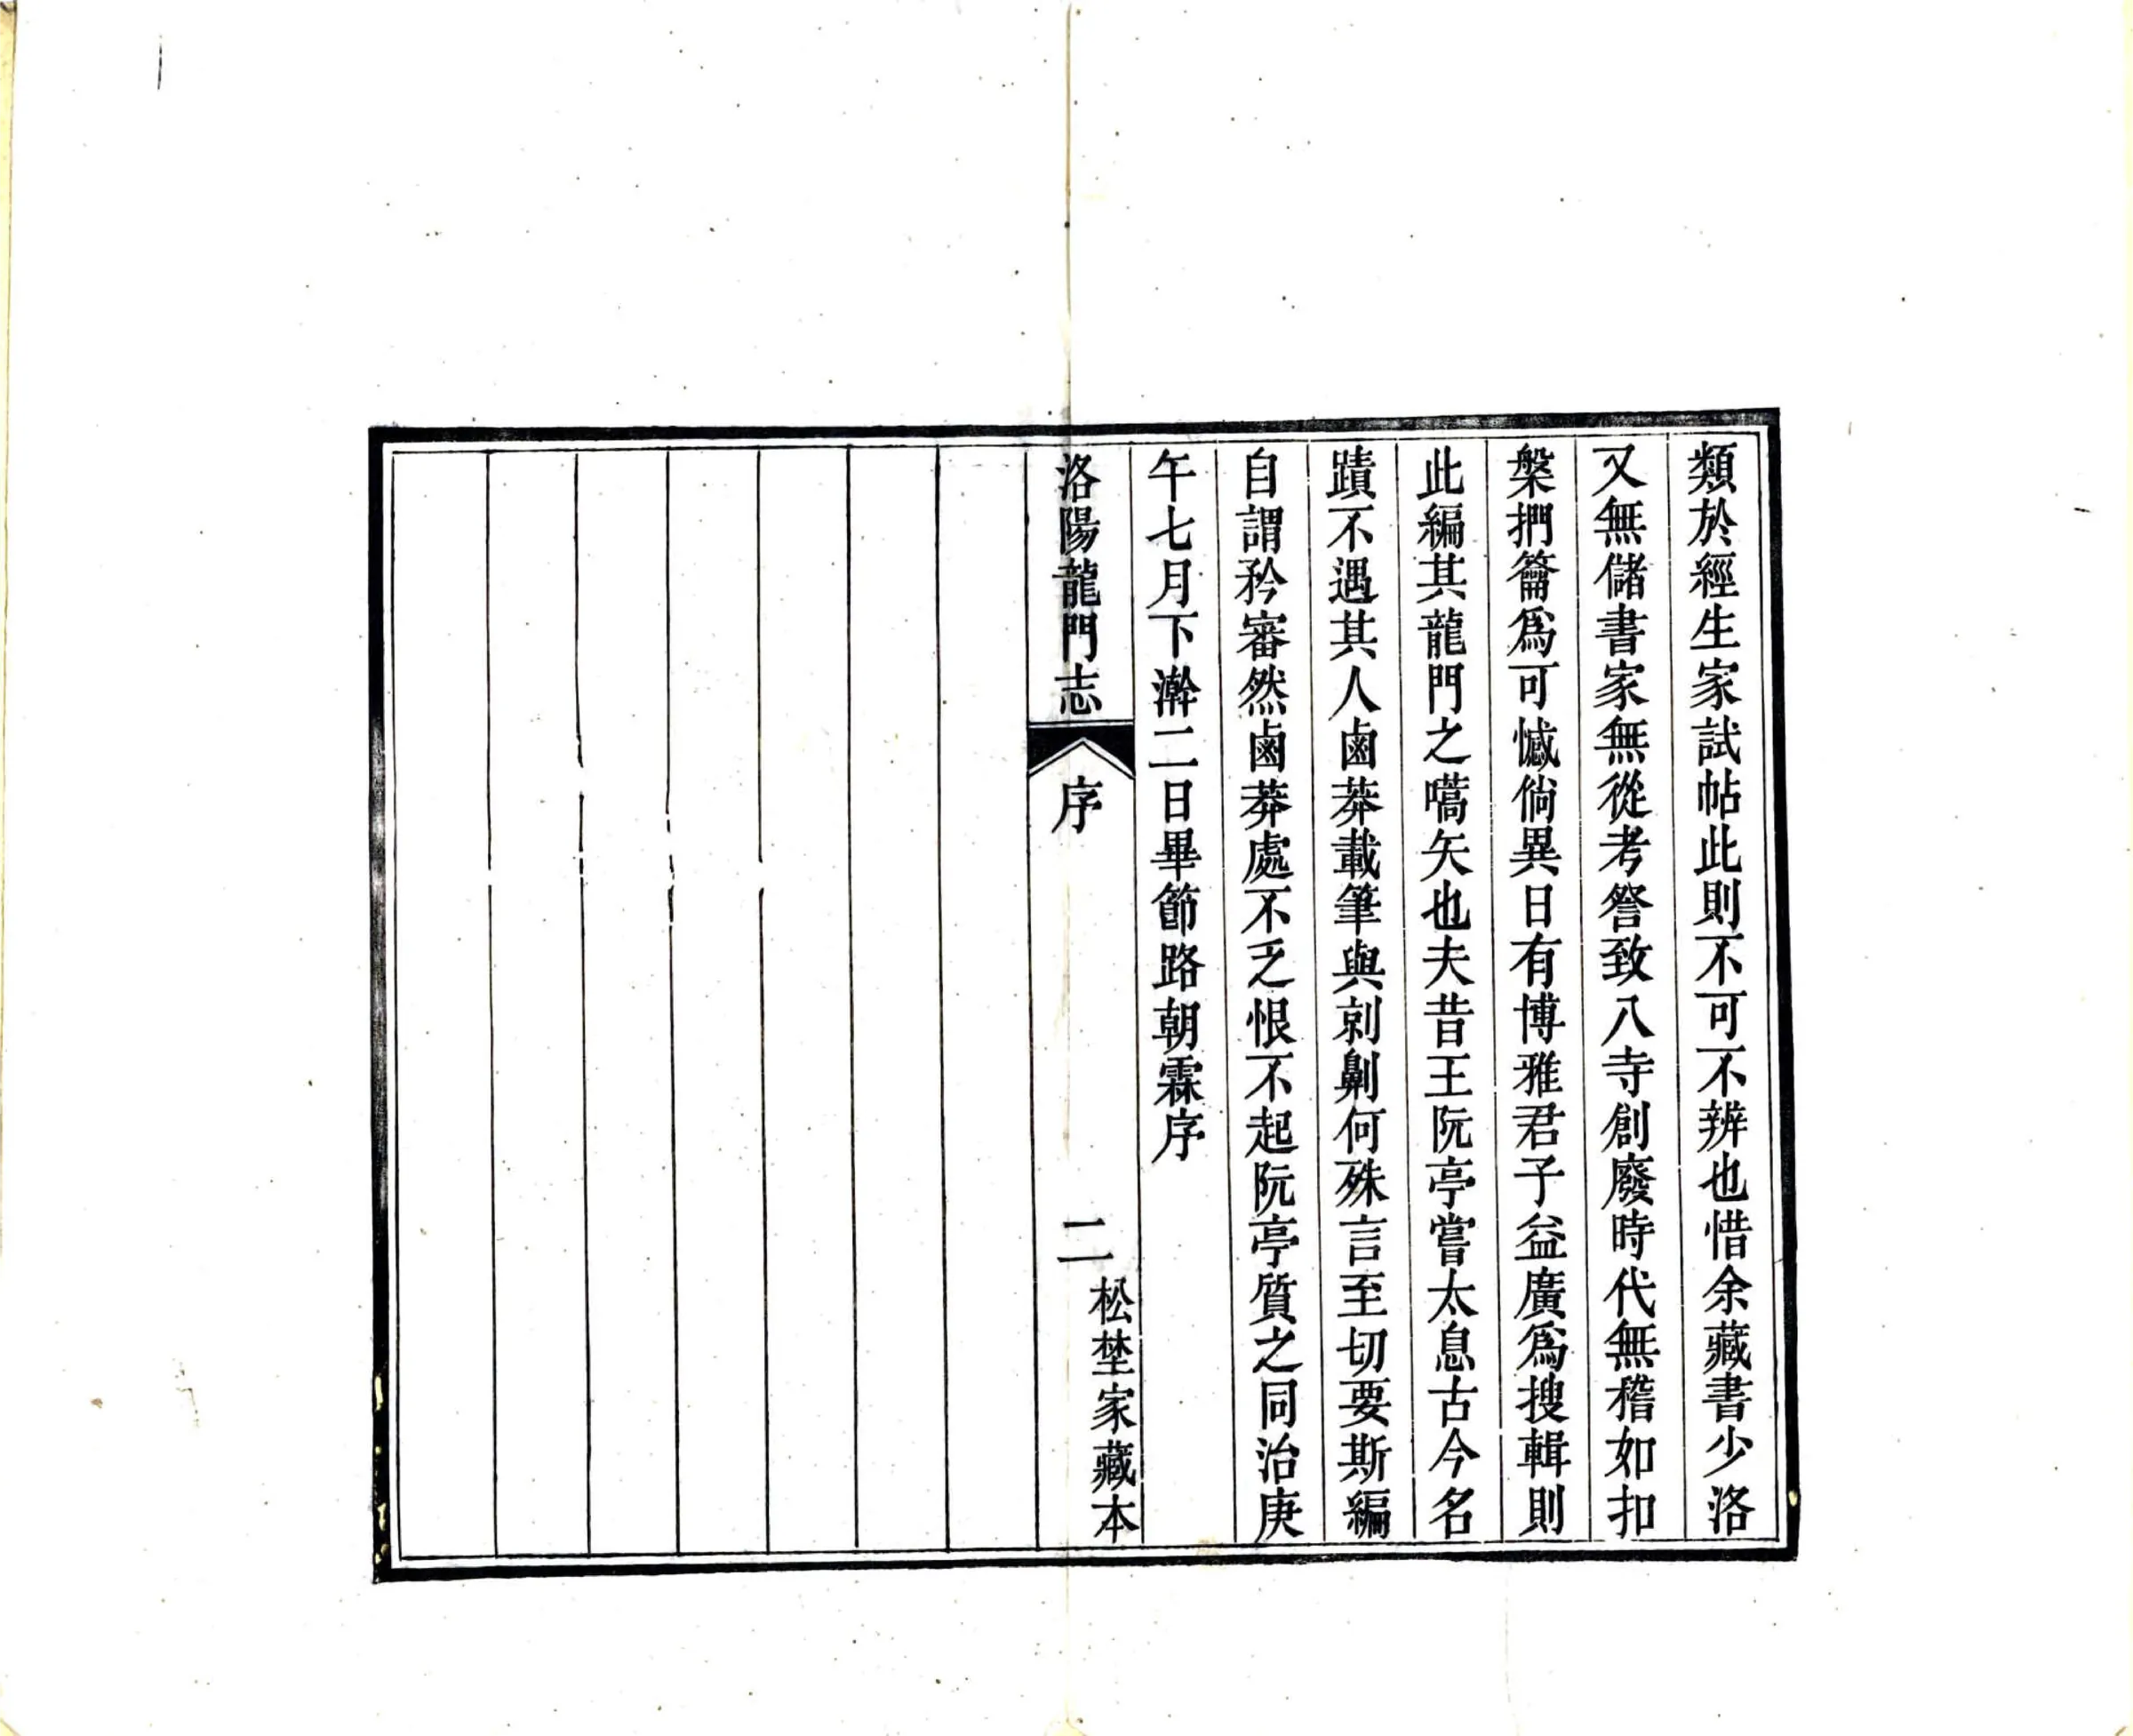 類於經生家試帖此則不可不辨也惜余藏書少洛
又無儲書家無從考詧致八寺創廢時代無稽如扣
槃捫籥爲可憾倘異日有博雅君子益廣爲搜輯則
此編其龍門之嚆矢也夫昔王阮亭嘗太息古今名
蹟不遇其人鹵莽載筆與剠劓何殊言至切要斯編
自謂矜審然鹵莽處不乏恨不起阮亭質之同治庚
午七月下澣二日畢節路朝霖序
洛陽龍門志
序
二
松埜家藏本